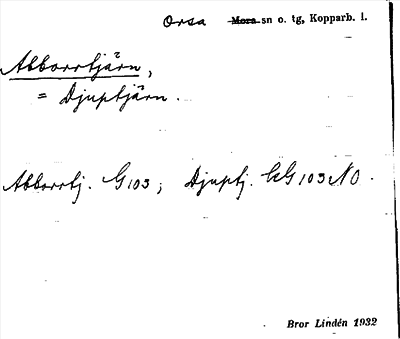 Orsa Mora sn o. tg, Kopparb. l.
Abborrtjärn,
= Djuptjärn.
Abborrtj. G103; Djuptj. G103 NO.
Bror Lindén 1932